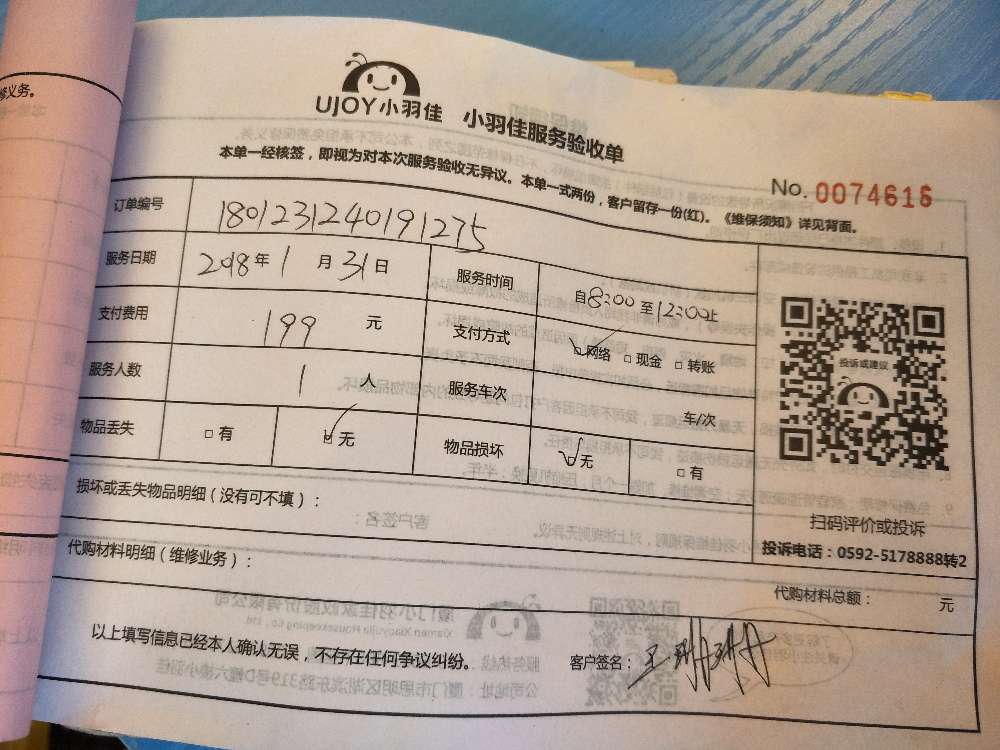 修义务。
UJOY小羽佳 小羽佳服务验收单
本单一经核签，即视为对本次服务验收无异议。本单一式两份，客户留存一份(红)。《维保须知》详见背面。
No. 0074615
订单编号 1801231240191275
服务日期 2018年1月31日 服务时间 自8:00至12:00止
支付费用 199 元 支付方式 □网络 □现金 □转账
服务人数 1 人 服务车次 车/次
物品丢失 □有 □无 物品损坏 □无 □有
投诉或建议
扫码评价或投诉
投诉电话：0592-5178888转2
损坏或丢失物品明细（没有可不填）：
代购材料明细（维修业务）：
代购材料总额： 元
以上填写信息已经本人确认无误，不存在任何争议纠纷。 客户签名：王